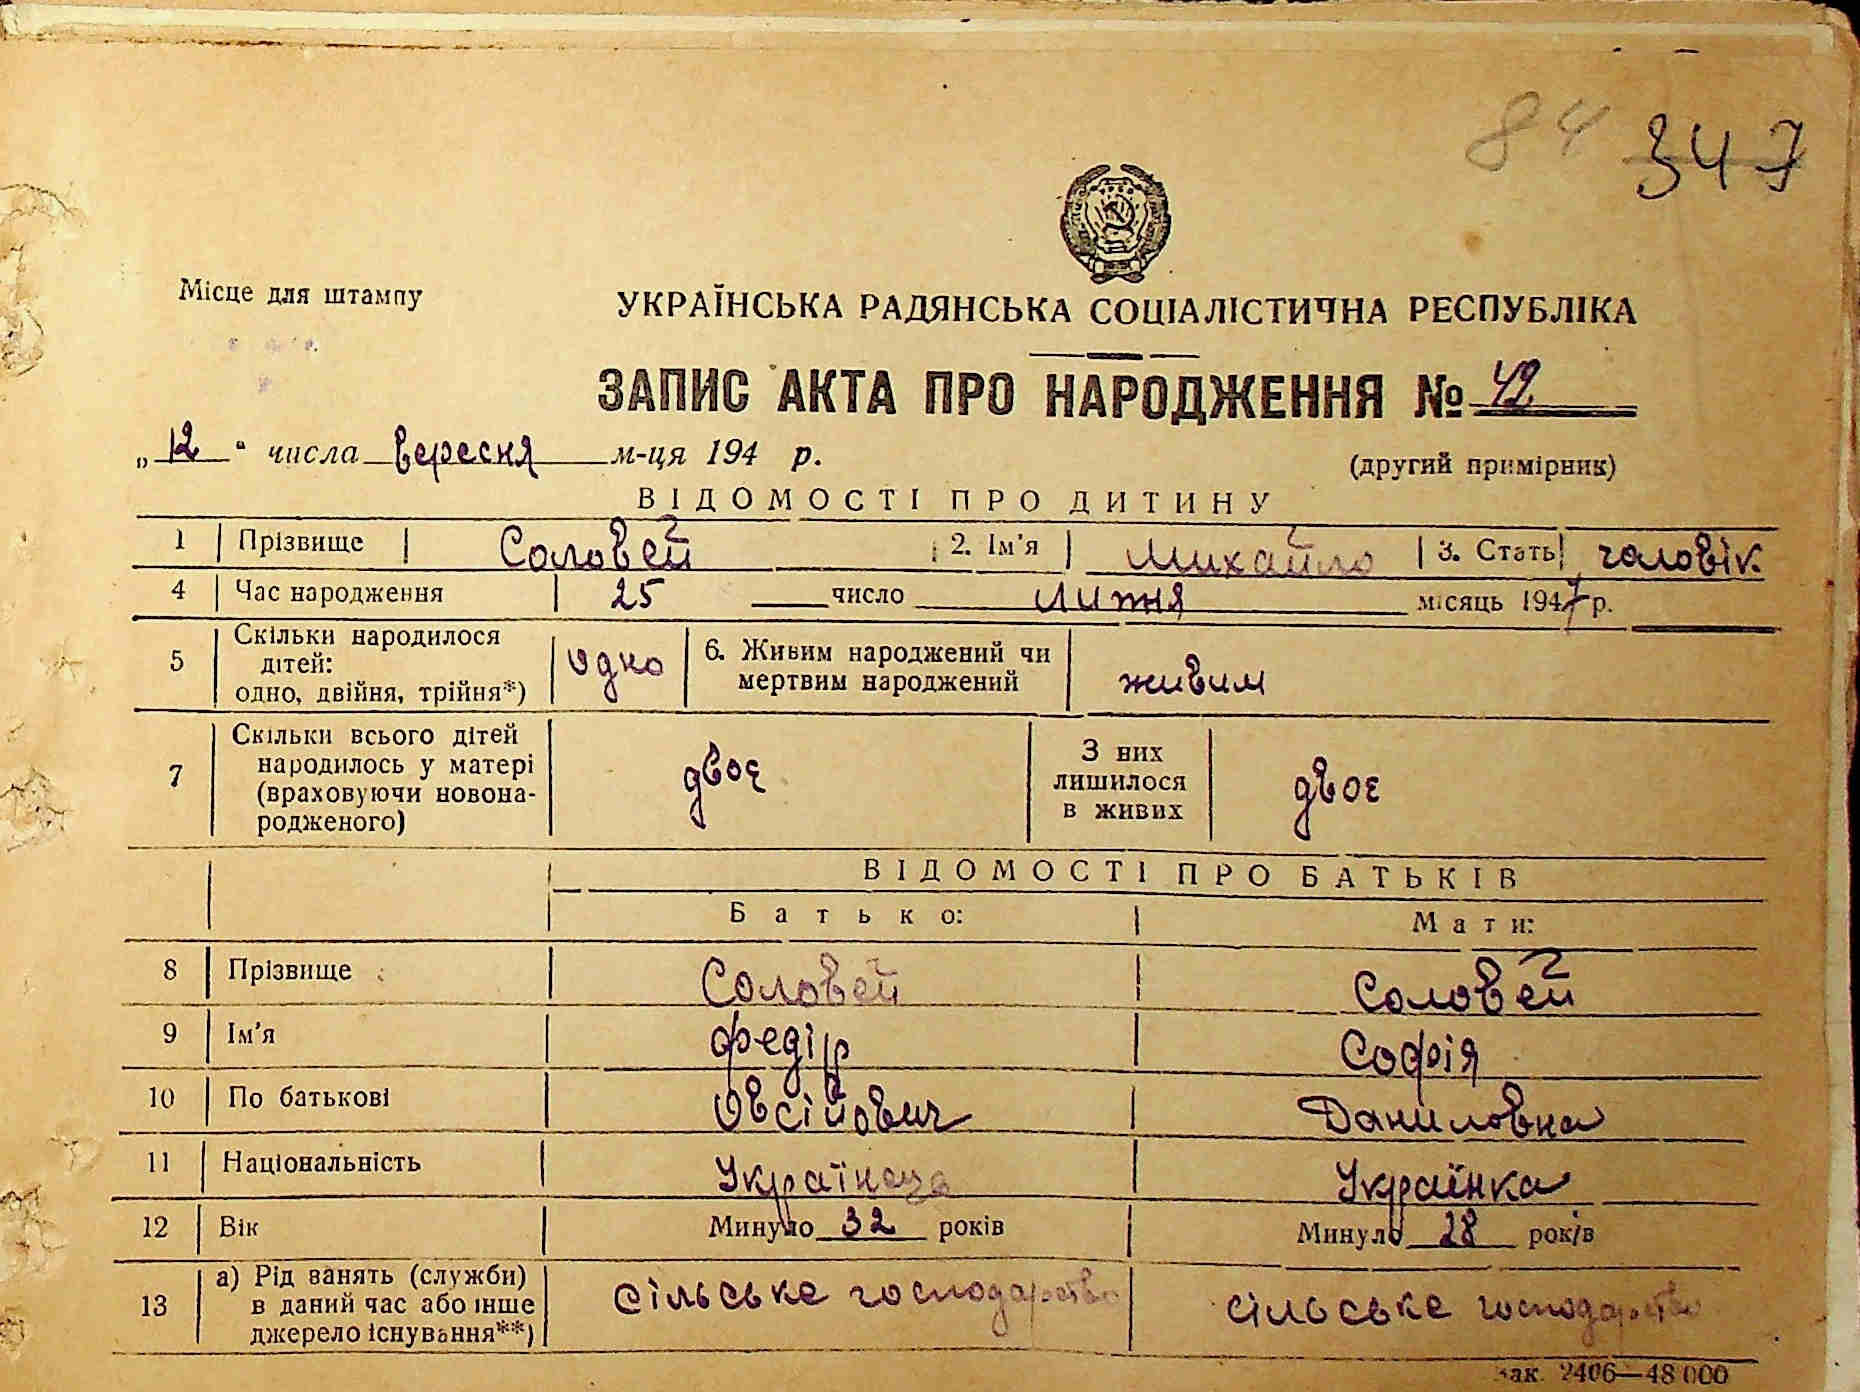 84 347
Місце для штампу
УКРАЇНСЬКА РАДЯНСЬКА СОЦІАЛІСТИЧНА РЕСПУБЛІКА
ЗАПИС АКТА ПРО НАРОДЖЕННЯ № 42
„12“ числа вересня м-ця 194 р.
(другий примірник)
ВІДОМОСТІ ПРО ДИТИНУ
1 Прізвище Соловей 2. Ім'я Михайло 3. Стать чоловік.
4 Час народження 25 число липня місяць 1947 р.
5 Скільки народилося дітей: одно, двійня, трійня*) одно 6. Живим народжений чи мертвим народжений живим
7 Скільки всього дітей народилось у матері (враховуючи новонародженого) двоє З них лишилося в живих двоє
ВІДОМОСТІ ПРО БАТЬКІВ
Батько: Мати:
8 Прізвище Соловей Соловей
9 Ім'я Федір Софія
10 По батькові Овсійович Даниловна
11 Національність Українець Українка
12 Вік Минуло 32 років Минуло 28 років
13 а) Рід занять (служби) в даний час або інше джерело існування**) сільське господарство сільське господарство
зак. 2406—48 000